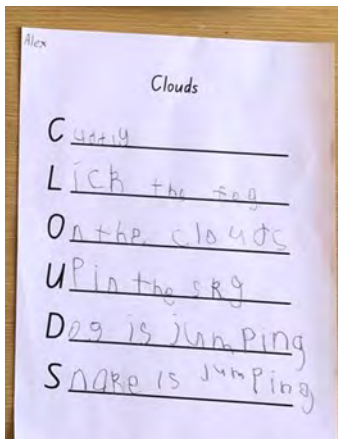 Alex
Clouds
Cuddly
Lick the fog
On the clouds
UP in the sky
Dog is jumPing
Snake is jumPing